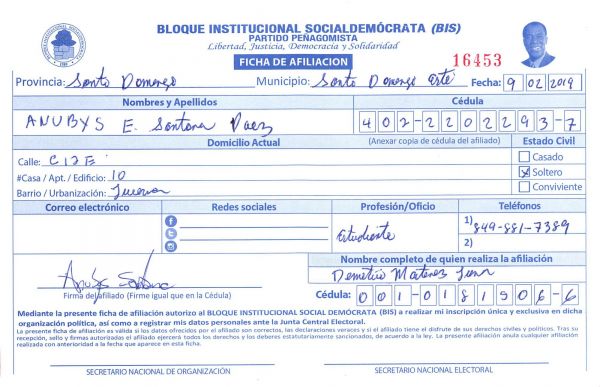 BLOQUE INSTITUCIONAL SOCIALDEMÓCRATA (BIS)
PARTIDO PEÑAGOMISTA
Libertad, Justicia, Democracia y Solidaridad
FICHA DE AFILIACION
16453
Provincia: Santo Domingo Municipio: Santo Domingo este Fecha: 9 02 2019
Nombres y Apellidos Cédula
ANUBYS E. Santana Paez 402-2202293-7
Domicilio Actual (Anexar copia de cédula del afiliado) Estado Civil
Calle: C 12 E Casado
#Casa / Apt. / Edificio: 10 Soltero
Barrio / Urbanización: Conviviente
Correo electrónico Redes sociales Profesión/Oficio Teléfonos
1) 849-881-7389
Estudiante 2)
Nombre completo de quien realiza la afiliación
Anubys Santana Demetrio Martinez
Firma del afiliado (Firme igual que en la Cédula) Cédula: 001-0181506-6
Mediante la presente ficha de afiliación autorizo al BLOQUE INSTITUCIONAL SOCIAL DEMÓCRATA (BIS) a realizar mi inscripción única y exclusiva en dicha
organización política, así como a registrar mis datos personales ante la Junta Central Electoral.
La presente ficha de afiliación es válida si los datos ofrecidos por el afiliado son correctos, las declaraciones veraces y si el afiliado tiene el disfrute de sus derechos civiles y políticos. Tras su
recepción, sello y firmas autorizadas el afiliado ejercerá todos los derechos y los deberes estatutariamente sancionados, de acuerdo a la ley. La presente afiliación anula cualquier afiliación
realizada con anterioridad a la fecha que aparece en esta ficha.
SECRETARIO NACIONAL DE ORGANIZACIÓN SECRETARIO NACIONAL ELECTORAL